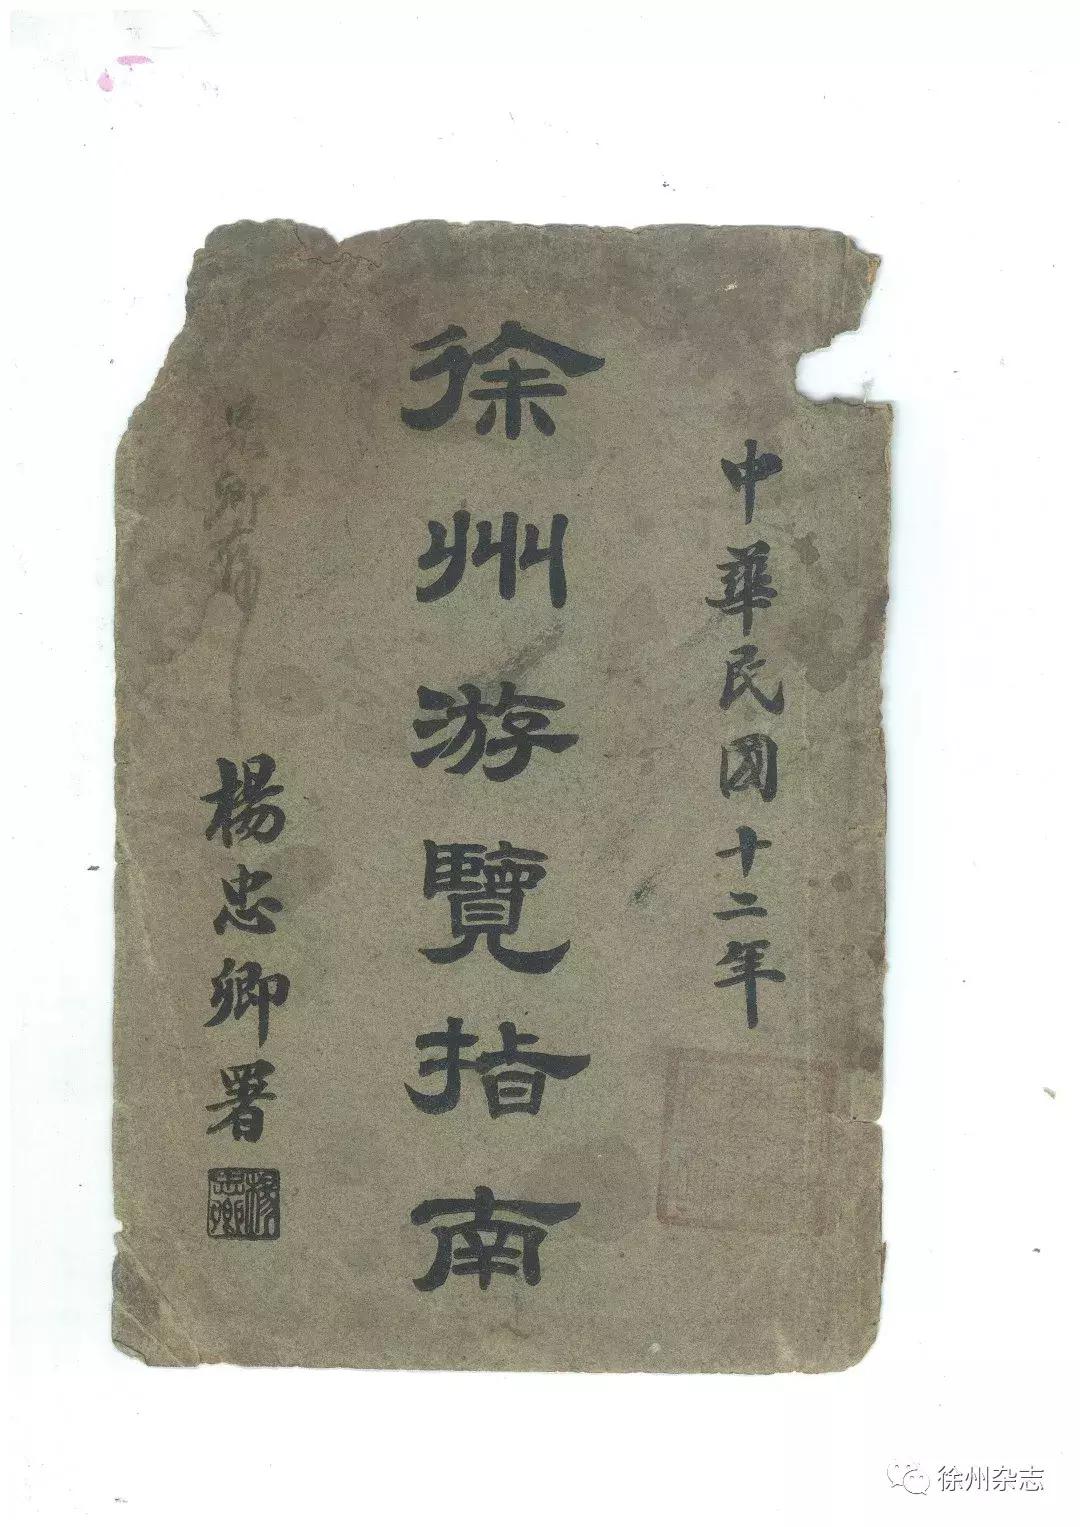 中華民國十二年
徐州游覽指南
楊忠卿署
楊忠卿
徐州杂志